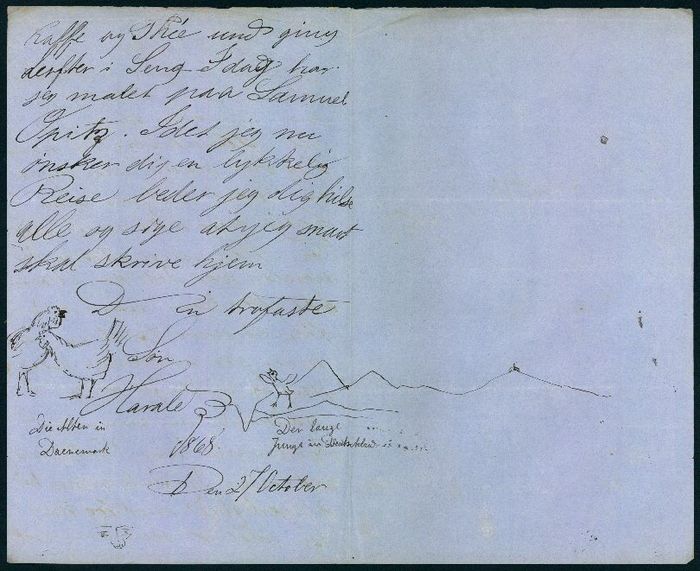 Kaffe og Thée und ging
derfter i Seng. I dag har
jeg malet paa Samuel
Opitz. Idet jeg nu
ønsker dig en lykkelig
Reise beder jeg dig hilse
alle og sige at jeg snart
skal skrive hjem
Din trofaste
Søn
Harald
Die Alten in
Daenemark
1868
Der lange
Junge in Deutschland
Den 27 October